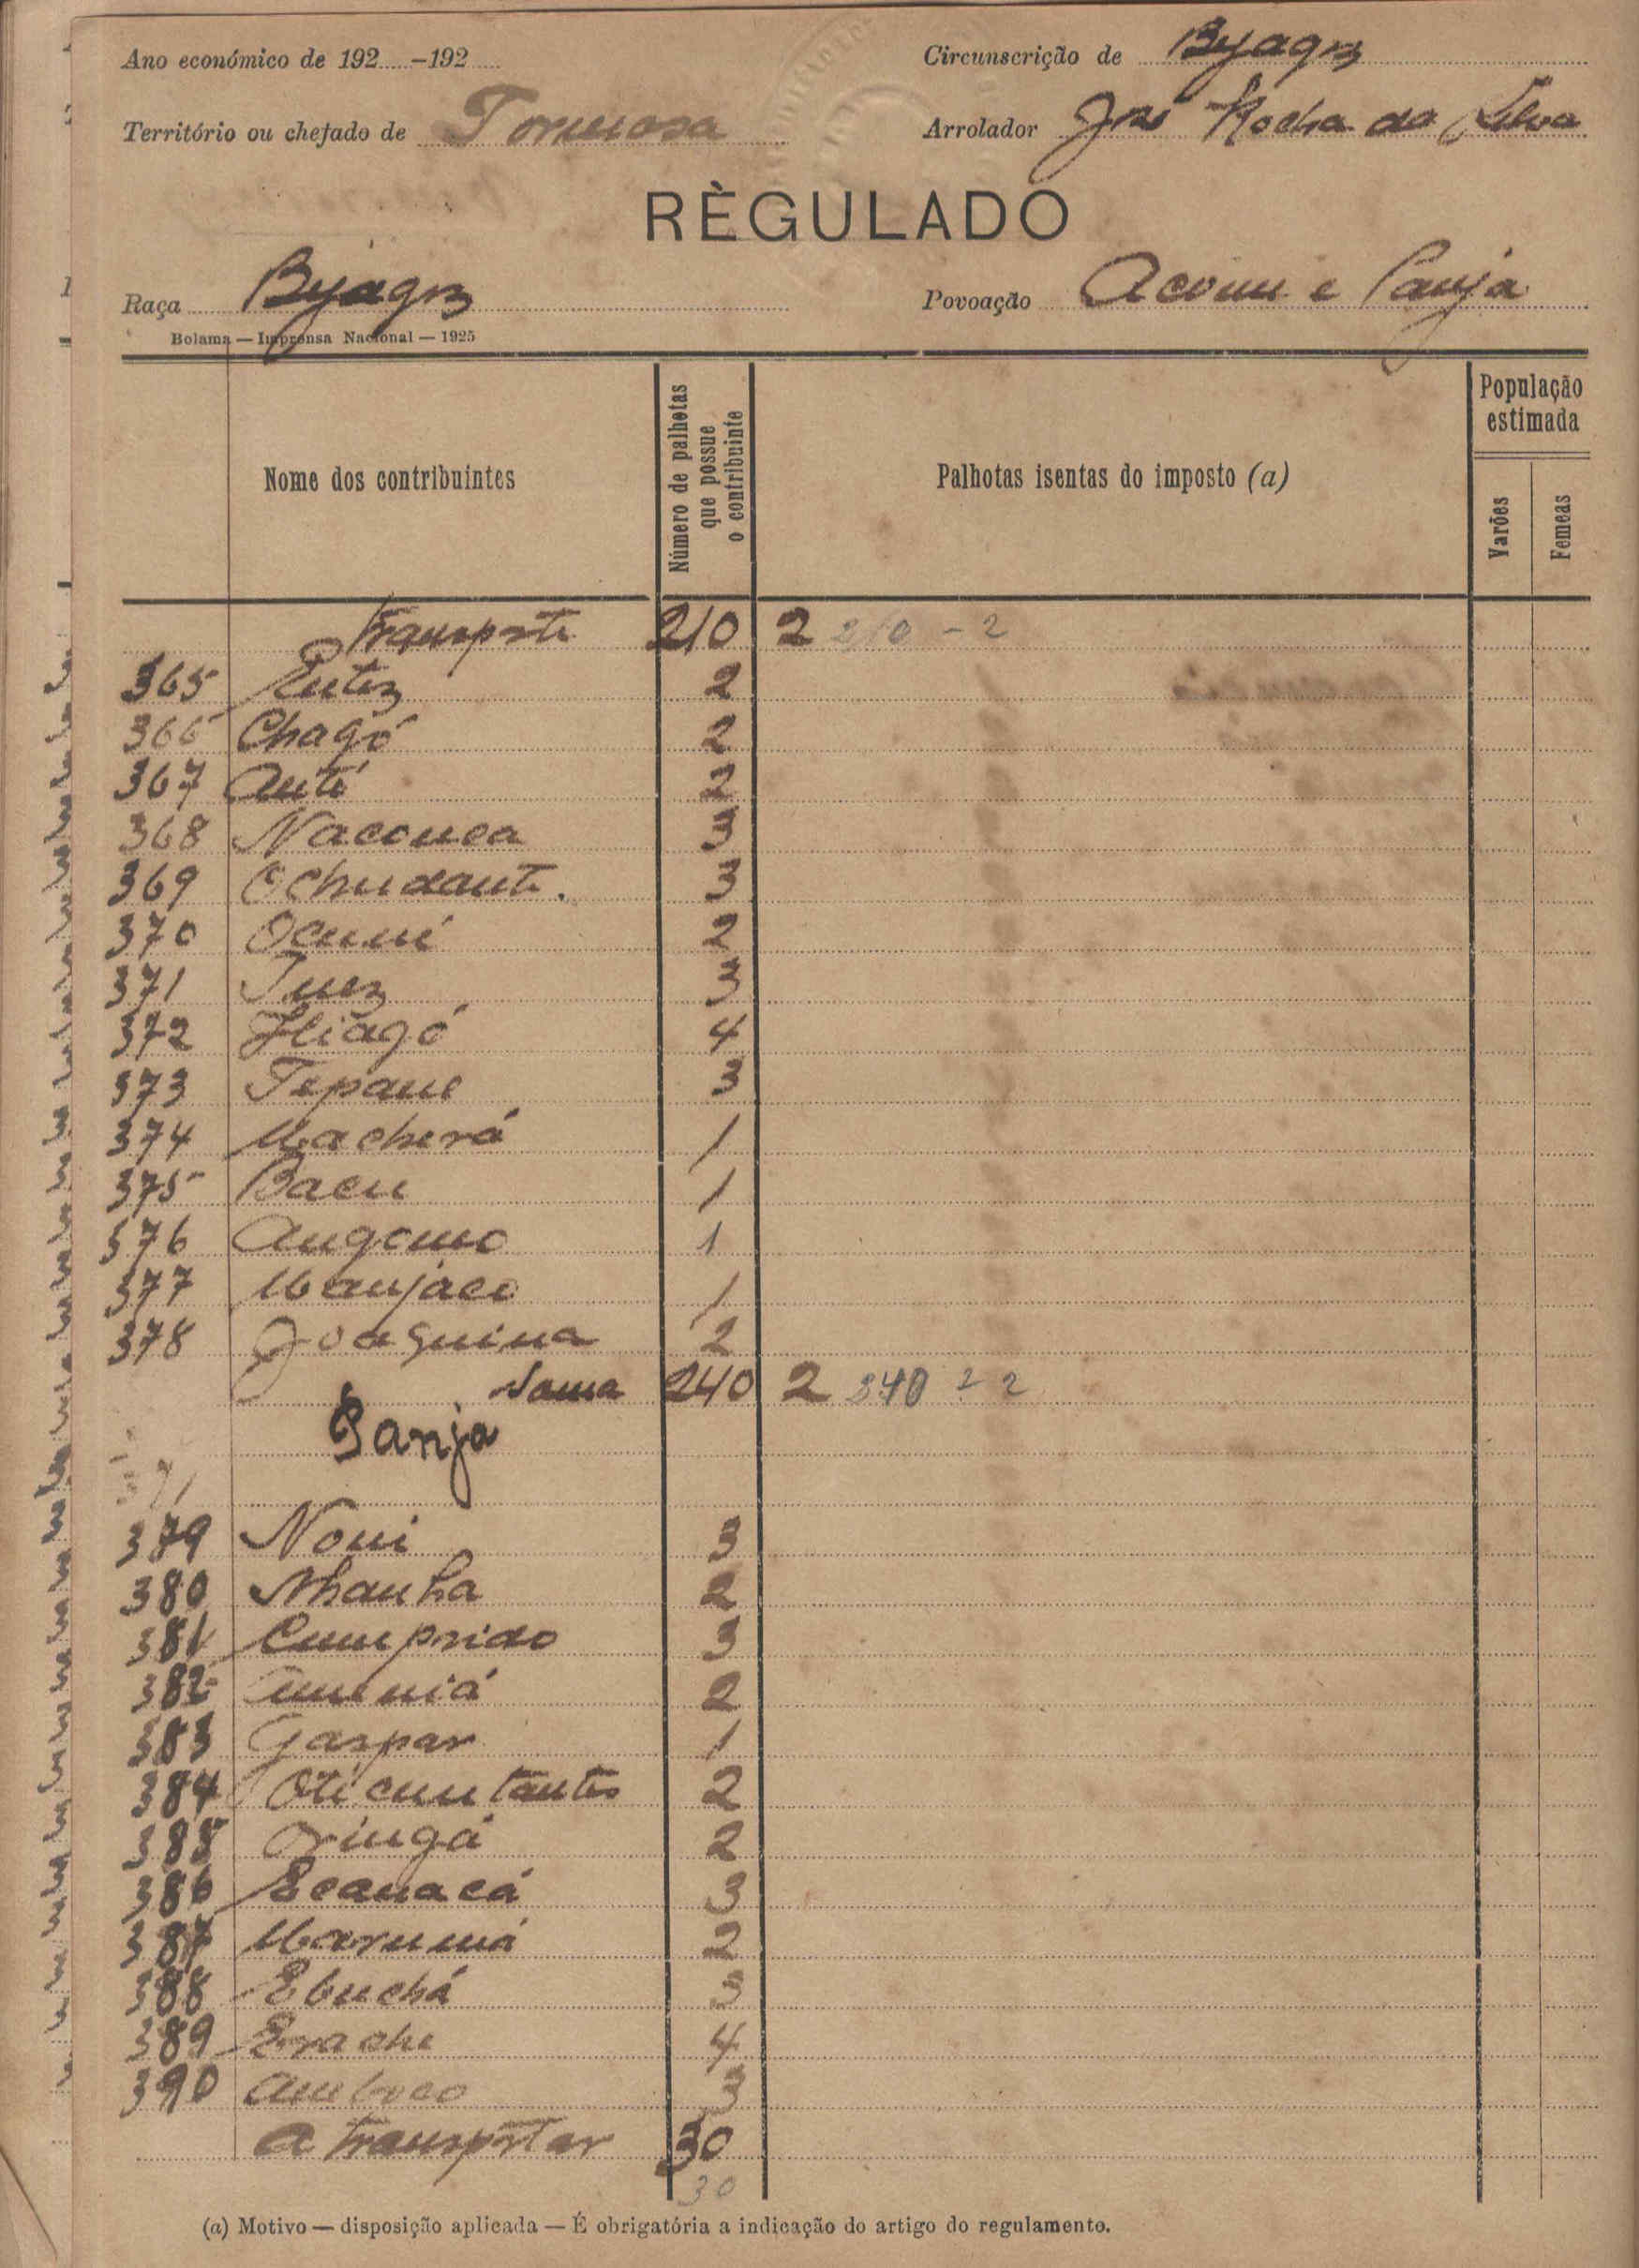 Ano económico de 192 –192
Circunscrição de Byagoz
Território ou chefado de Formosa
Arrolador José Rocha da Silva
RÈGULADO
Raça Byagoz
Povoação Acoum e Panja
Bolama — Imprensa Nacional — 1925
Nome dos contribuintes
Número de palhotas que possue o contribuinte
Palhotas isentas do imposto (a)
População estimada
Varões
Femeas
Transporte 210 2 210 - 2
365 2
366 Chagó 2
367 Anti 2
368 Naconca 3
369 3
370 2
371 Inez 3
372 4
373 Tepane 3
374 Macherá 1
375 Bacu 1
376 Angomo 1
377 Manjaco 1
378 Joaquina 2
Soma 240 2 240 - 2
Panja
379 Noui 3
380 Nhanha 2
381 Cumprido 3
382 2
383 Gaspar 1
384 2
385 Oringá 2
386 Ecanacá 3
387 Marumá 2
388 Ebuchá 3
389 Erache 4
390 3
A transportar 30
30
(a) Motivo — disposição aplicada — É obrigatória a indicação do artigo do regulamento.